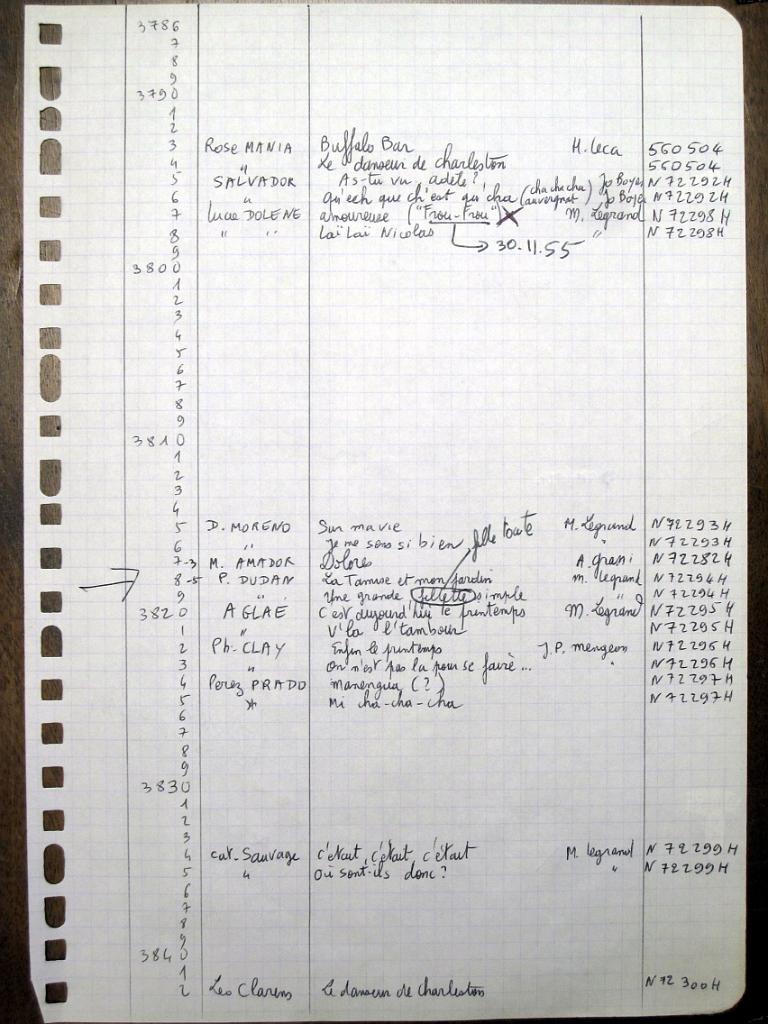 3786
7
8
9
3790
1
2
3 Rose MANIA Buffalo Bar H. Leca 560504
4 " Le danseur de charleston 560504
5 SALVADOR As-tu vu adèle ? Jo Boyer N 72292H
6 " qu'ech que ch'est qui cha (cha cha cha auvergnat) Jo Boyer N 72292H
7 Lucie DOLENE amoureuse ("Frou-Frou") X M. Legrand N 72298H
8 " " Laï Laï Nicolas " N 72298H
9 → 30.11.55
3800
1
2
3
4
5
6
7
8
9
3810
1
2
3
4
5 D. MORENO Sur ma vie M. Legrand N 72293H
6 " Je me sens si bien fille toute " N 72293H
7-3 M. AMADOR Dolores A. grassi N 72282H
8-5 P. DUDAN La Tamise et mon jardin M. Legrand N 72294H
9 " Une grande fillette simple " N 72294H
3820 AGLAE C'est aujourd'hui le printemps M. Legrand N 72295H
1 " V'la l'tambour N 72295H
2 Ph. CLAY Enfin le printemps J.P. mengeon N 72296H
3 " on n'est pas la pour se faire... " N 72296H
4 Perez PRADO manengua (?) N 72297H
5 " Mi cha-cha-cha N 72297H
6
7
8
9
3830
1
2
3
4 cat. Sauvage c'était, c'était, c'était M. Legrand N 72299H
5 " Où sont-ils donc ? " N 72299H
6
7
8
9
3840
1
2 Les Clarens Le danseur de charleston N 72 300H